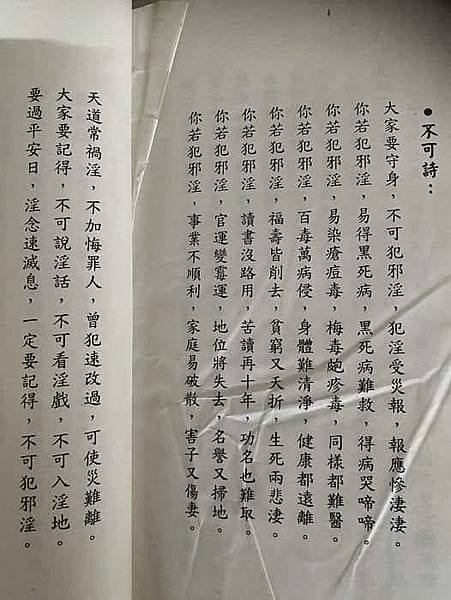 •不可詩：
大家要守身，不可犯邪淫，犯淫受災報，報應慘淒淒。
你若犯邪淫，易得黑死病，黑死病難救，得病哭啼啼。
你若犯邪淫，易染瘡痘毒，梅毒皰疹毒，同樣都難醫。
你若犯邪淫，百毒萬病侵，身體難清淨，健康都遠離。
你若犯邪淫，福壽皆削去，貧窮又夭折，生死兩悲淒。
你若犯邪淫，讀書沒路用，苦讀再十年，功名也難取。
你若犯邪淫，官運變霉運，地位將失去，名譽又掃地。
你若犯邪淫，事業不順利，家庭易破散，害子又傷妻。
天道常禍淫，不加悔罪人，曾犯速改過，可使災難離。
大家要記得，不可說淫話，不可看淫戲，不可入淫地。
要過平安日，淫念速滅息，一定要記得，不可犯邪淫。